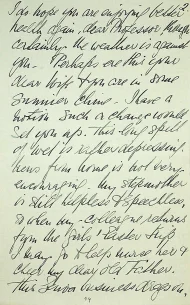 I do hope you are enjoying better
health, dear Professor,
certainly the weather is against
you - Perhaps ere this your
dear wife & you are in some
sunnier clime - I have a
notion such a change would
set you up. This long spell
of wet is rather depressing.
News from home is not very
encouraging. My stepmother
is still helpless & speechless,
so when my colleague returns
from the "girls'" Easter
I may go & help nurse her &
cheer my dear old Father.
This business drags on.